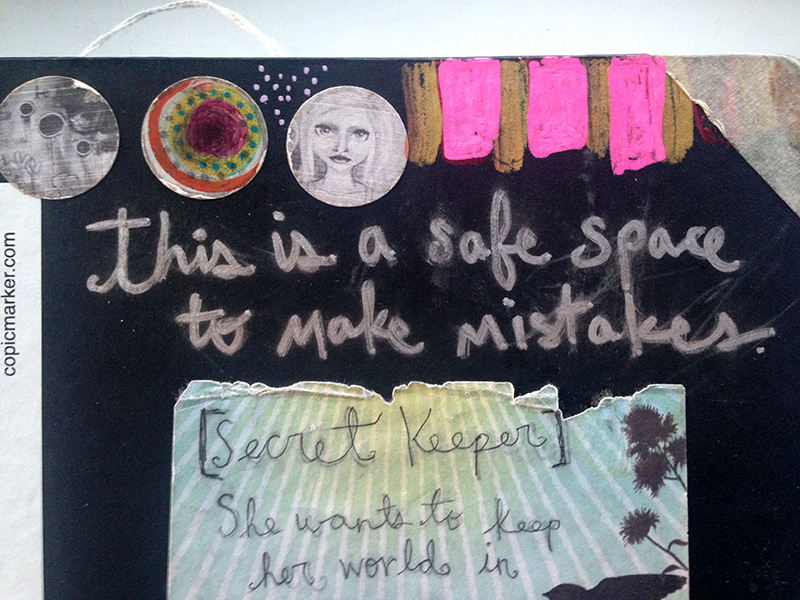 copicmarker.com
this is a safe space
to make mistakes.
[Secret Keeper]
She wants to keep
her world in